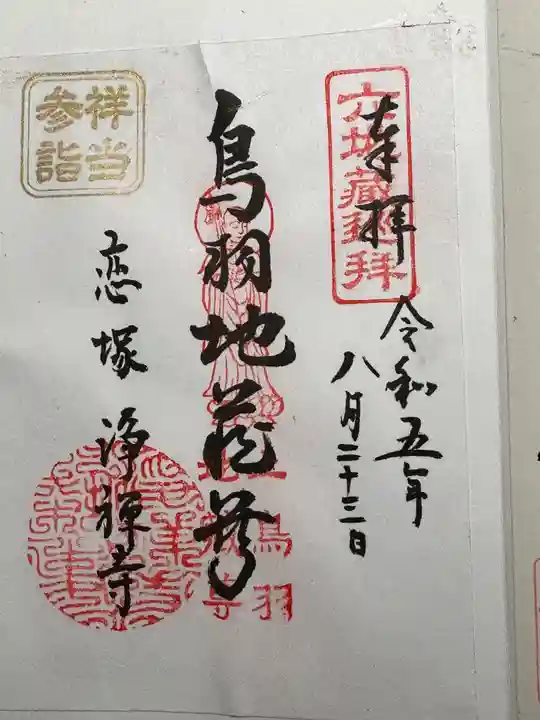 六地蔵廻拝
奉拝
令和五年
八月二十三日
鳥羽地蔵尊
上鳥羽
恋塚 浄禅寺
祥当
参詣